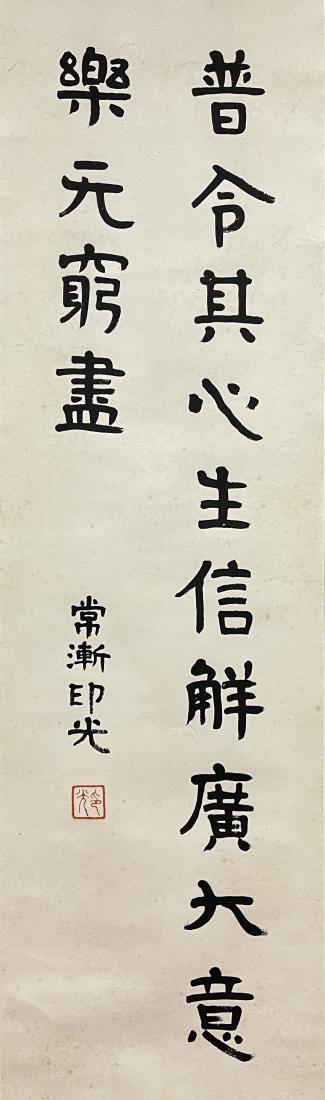 普令其心生信解廣大意
樂无窮盡
常漸印光
印光